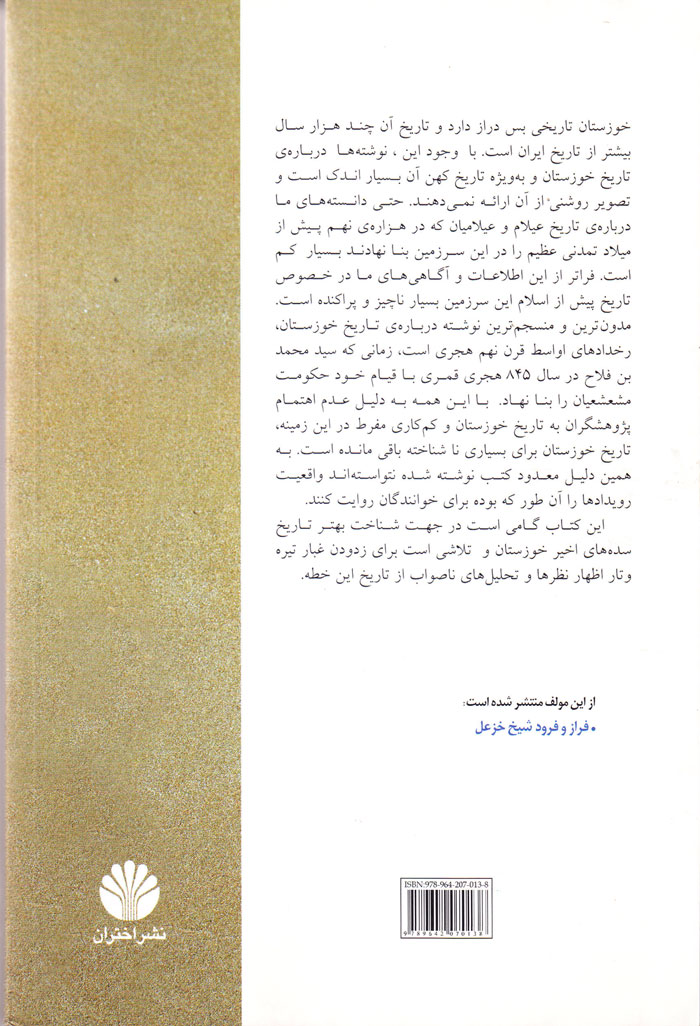 خوزستان تاریخی بس دراز دارد و تاریخ آن چند هزار سال
بیشتر از تاریخ ایران است. با وجود این ، نوشته‌ها درباره‌ی
تاریخ خوزستان و به‌ویژه تاریخ کهن آن بسیار اندک است و
تصویر روشنی از آن ارائه نمی‌دهند. حتی دانسته‌های ما
درباره‌ی تاریخ عیلام و عیلامیان که در هزاره‌ی نهم پیش از
میلاد تمدنی عظیم را در این سرزمین بنا نهادند بسیار کم
است. فراتر از این اطلاعات و آگاهی‌های ما در خصوص
تاریخ پیش از اسلام این سرزمین بسیار ناچیز و پراکنده است.
مدون‌ترین و منسجم‌ترین نوشته درباره‌ی تاریخ خوزستان،
رخدادهای اواسط قرن نهم هجری است، زمانی که سید محمد
بن فلاح در سال ۸۴۵ هجری قمری با قیام خود حکومت
مشعشعیان را بنا نهاد. با این همه به دلیل عدم اهتمام
پژوهشگران به تاریخ خوزستان و کم‌کاری مفرط در این زمینه،
تاریخ خوزستان برای بسیاری نا شناخته باقی مانده است. به
همین دلیل معدود کتب نوشته شده نتواسته‌اند واقعیت
رویدادها را آن طور که بوده برای خوانندگان روایت کنند.
این کتاب گامی است در جهت شناخت بهتر تاریخ
سده‌های اخیر خوزستان و تلاشی است برای زدودن غبار تیره
وتار اظهار نظرها و تحلیل‌های ناصواب از تاریخ این خطه.
از این مولف منتشر شده است:
• فراز و فرود شیخ خزعل
ISBN:978-964-207-013-8
9 789642 070138
نشر اختران